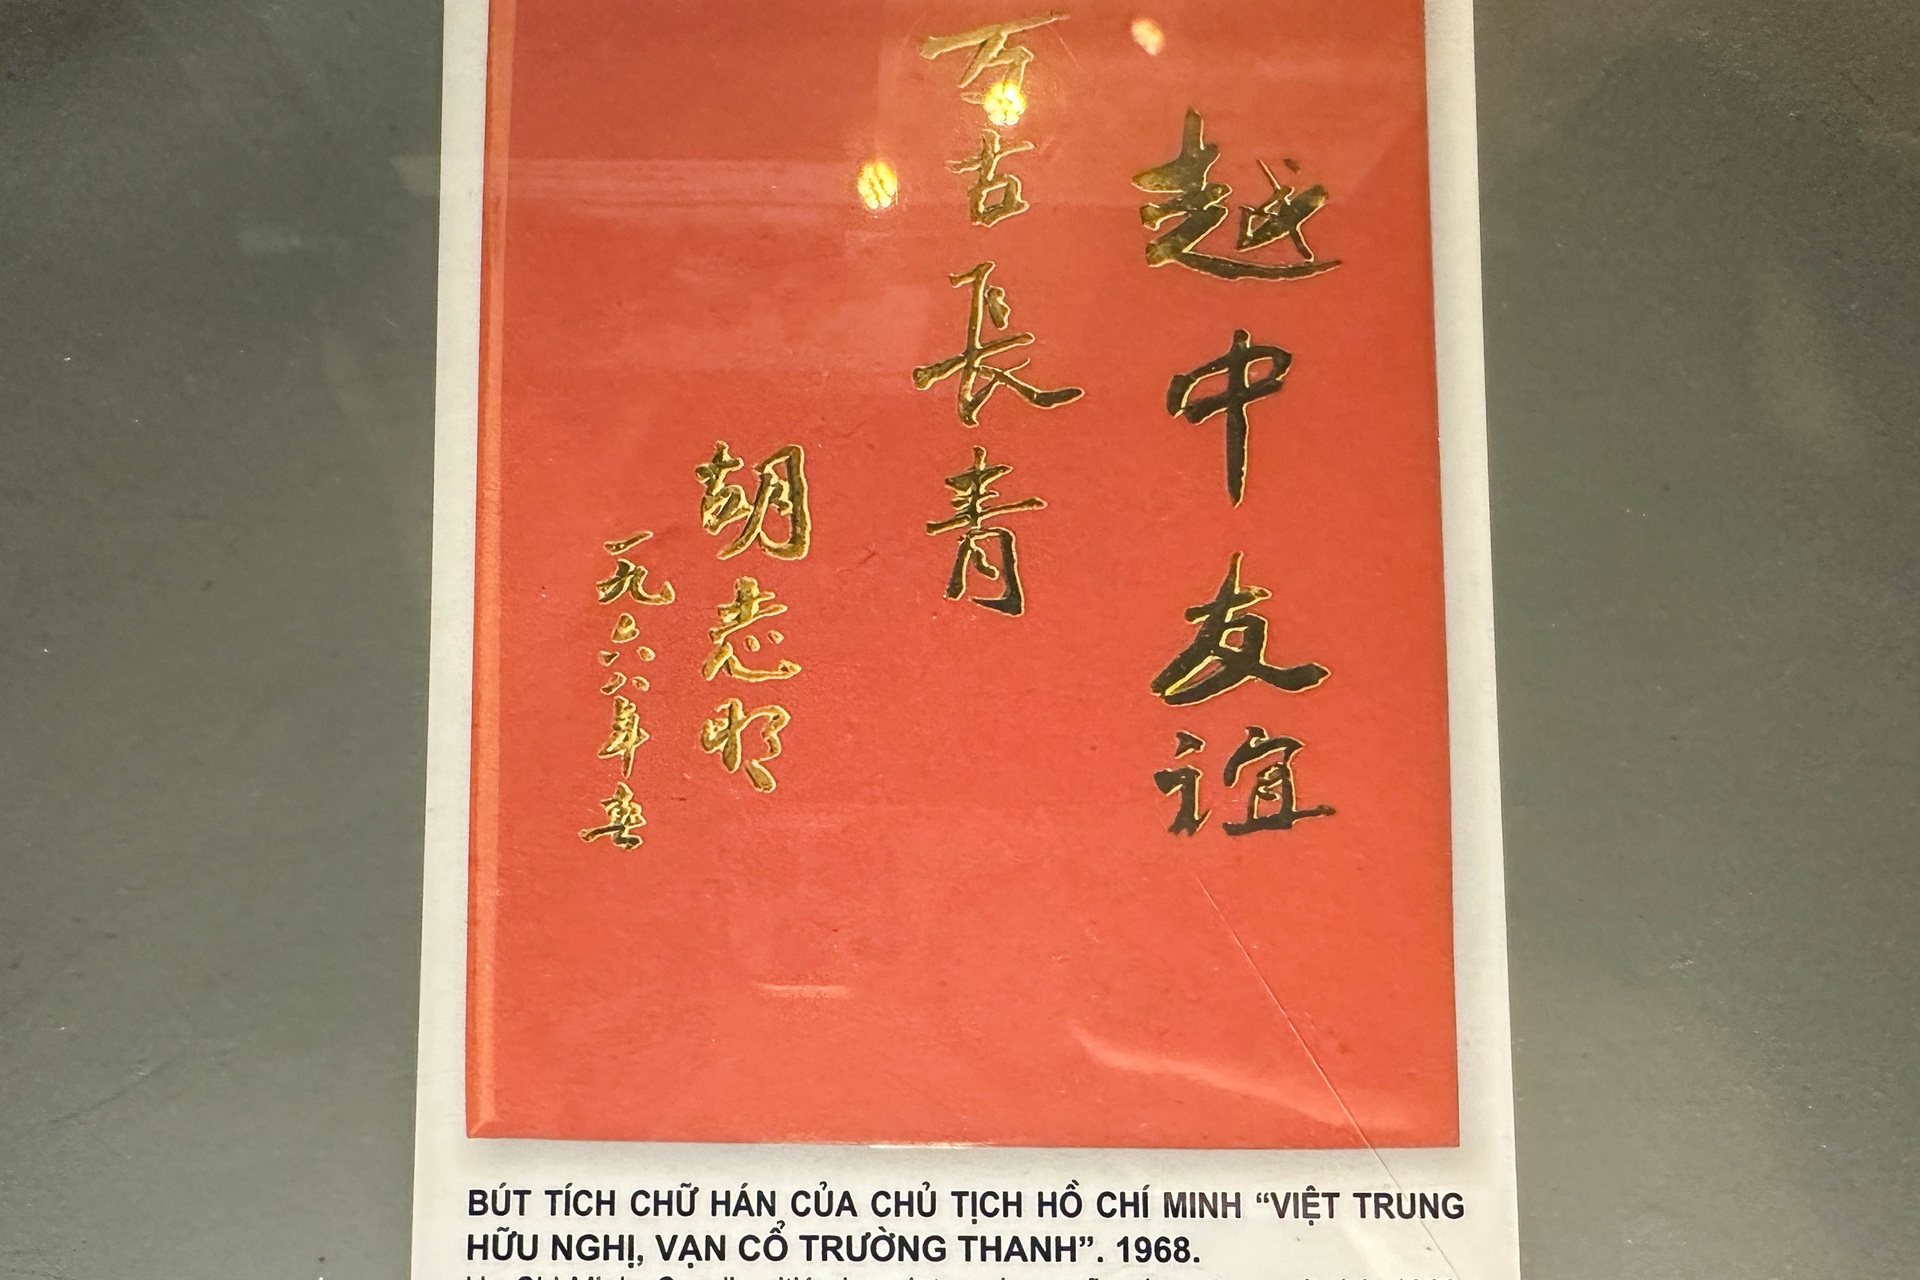 越中友誼
万古長青
胡志明
一九六八年春
BÚT TÍCH CHỮ HÁN CỦA CHỦ TỊCH HỒ CHÍ MINH “VIỆT TRUNG
HỮU NGHỊ, VẠN CỔ TRƯỜNG THANH”. 1968.